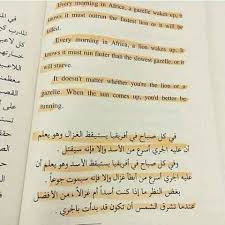 Every morning in Africa, a gazelle wakes up, it
knows it must outrun the fastest lion or it will be
killed.
Every morning in Africa, a lion wakes up. It
knows it must run faster than the slowest gazelle, or it
will starve.
It doesn't matter whether you're the lion or a
gazelle. When the sun comes up, you'd better be
running.
في كل صباح في أفريقيا يستيقظ الغزال وهو يعلم
أن عليه الجري أسرع من الأسد وإلا فإنه سيقتل.
وفي كل صباح في أفريقيا يستيقظ الأسد وهو يعلم أن
عليه الجري أسرع من أبطأ غزال وإلا فإنه سيموت جوعاً.
بغض النظر ما إذا كنت أسداً أم غزالاً، من الأفضل
عندما تشرق الشمس أن تكون قد بدأت بالجري.